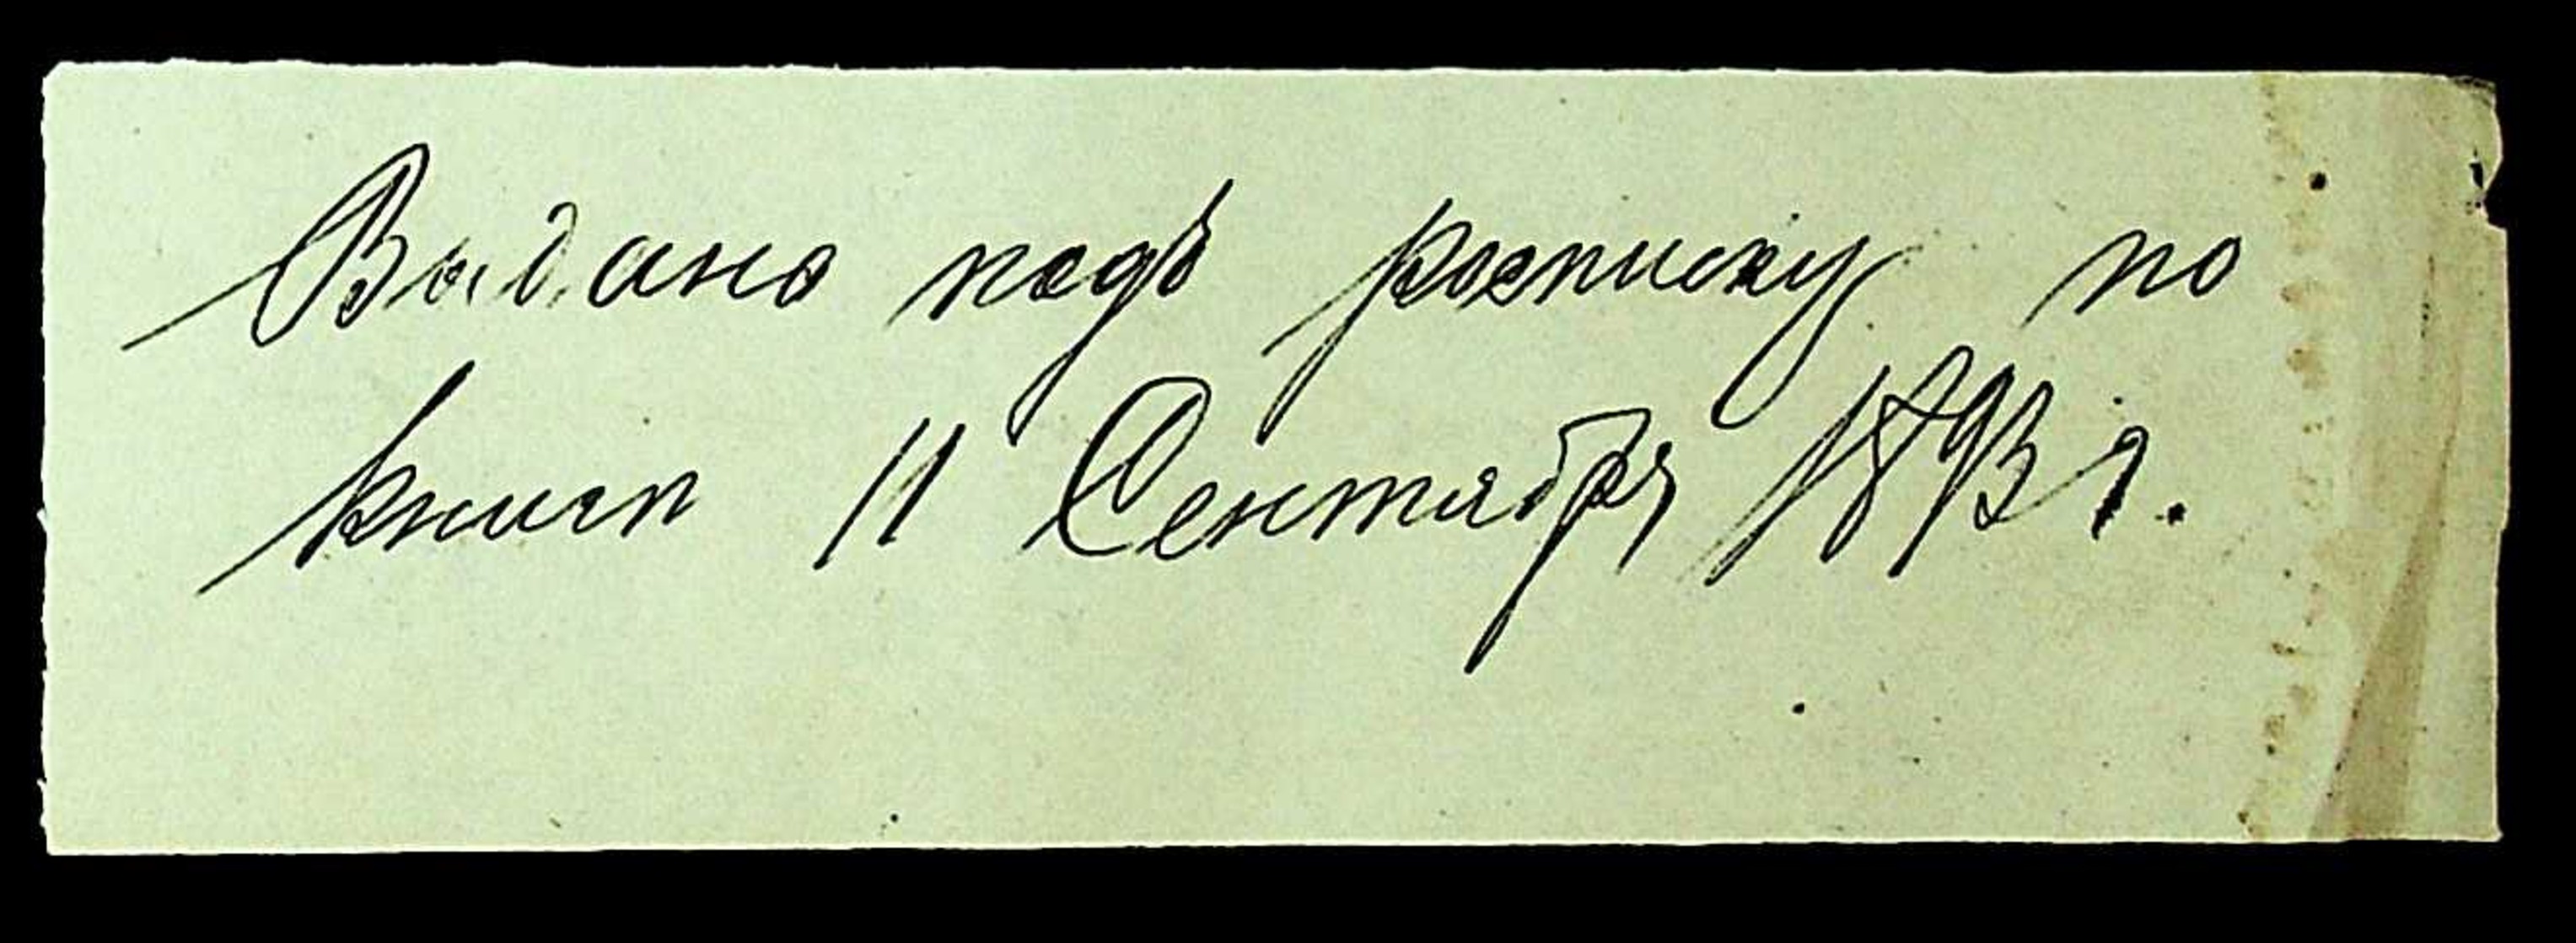 Выдано подъ росписку по
книгѣ 11 Сентября 1893 г.